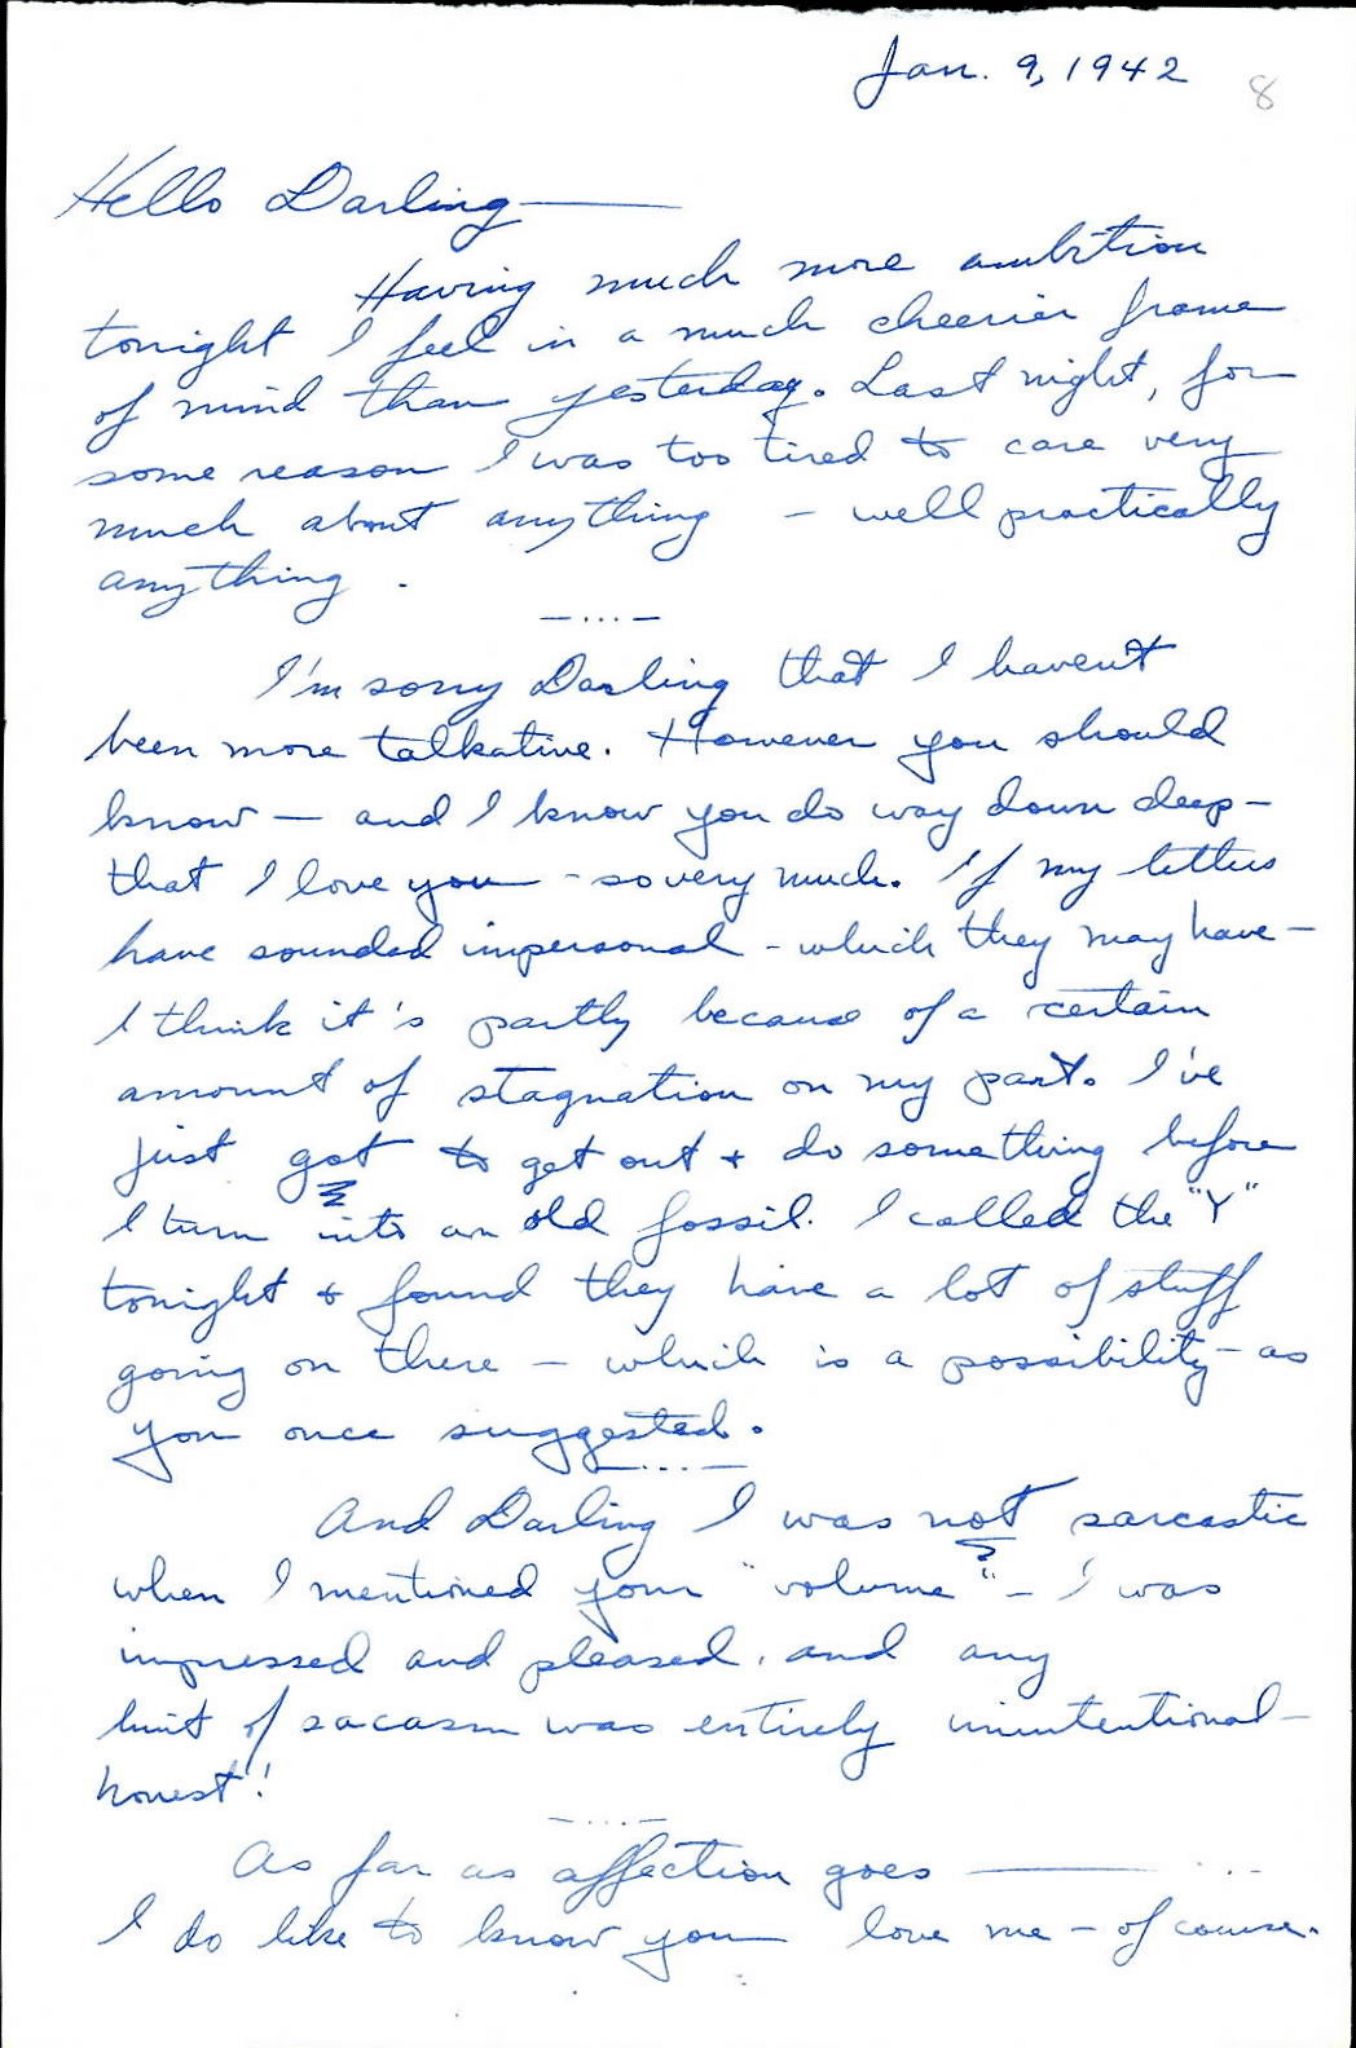 Jan. 9, 1942
8
Hello Darling —
Having much more ambition
tonight I feel in a much cheerier frame
of mind than yesterday. Last night, for
some reason I was too tired to care very
much about anything - well practically
anything.
— ... —
I'm sorry Darling that I haven't
been more talkative. However you should
know — and I know you do way down deep -
that I love you - so very much. If my letters
have sounded impersonal - which they may have -
I think it's partly because of a certain
amount of stagnation on my part. I've
just got to get out + do something before
I turn into an old fossil. I called the "Y"
tonight + found they have a lot of stuff
going on there — which is a possibility - as
you once suggested.
— ... —
And Darling I was not sarcastic
when I mentioned your "volume" - I was
impressed and pleased, and any
hint of sacasm was entirely unintentional -
honest!
— ... —
As far as affection goes — ...
I do like to know you love me - of course.